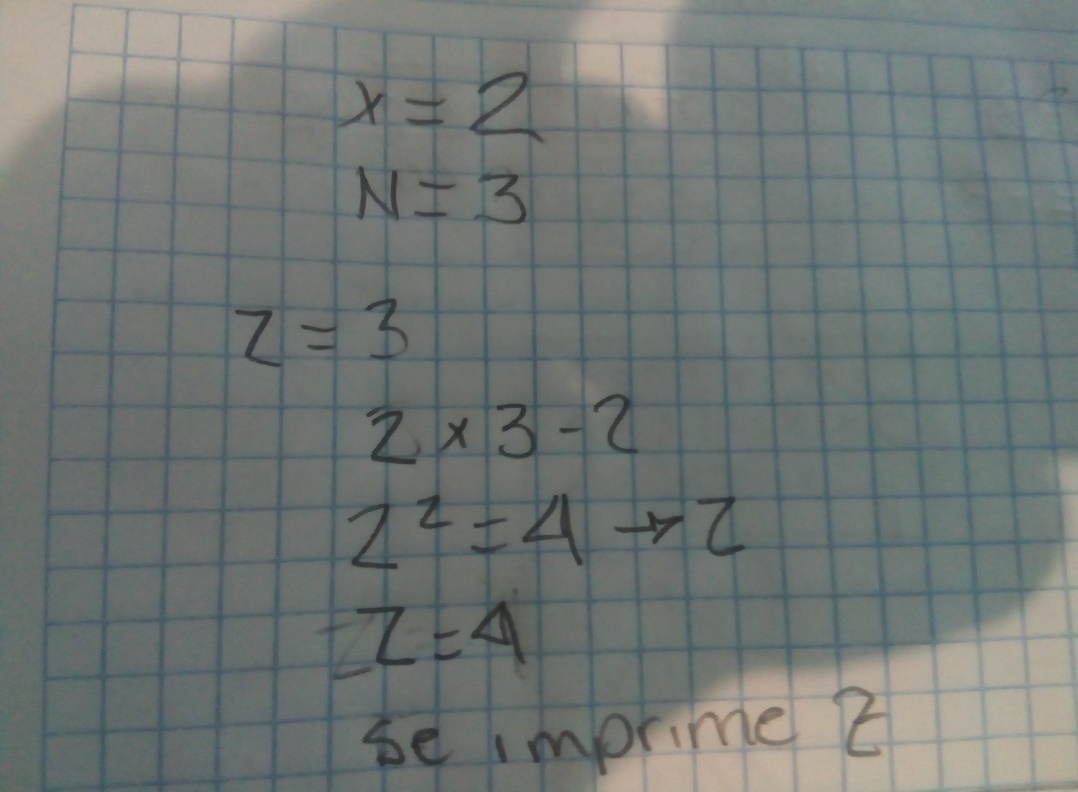 x = 2
N = 3
Z = 3
2 x 3 - 2
2² = 4 → Z
Z = 4
se imprime Z